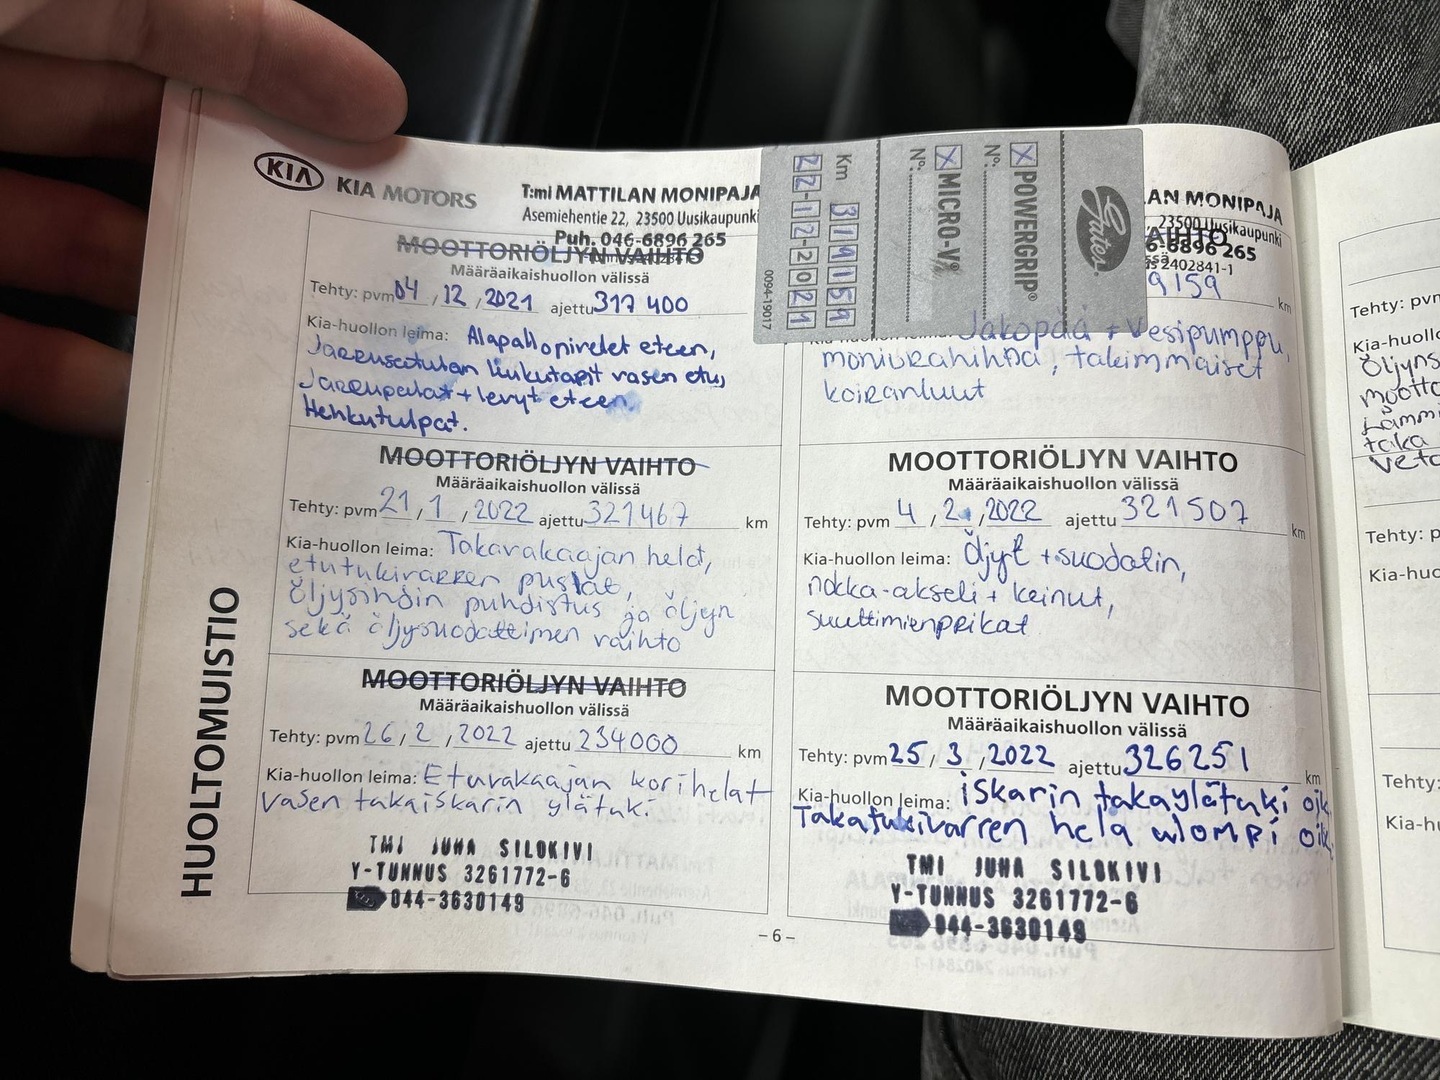 KIA KIA MOTORS
HUOLTOMUISTIO
T:mi MATTILAN MONIPAJA
Asemiehentie 22, 23500 Uusikaupunki
Puh. 046-6896 265
MOOTTORIÖLJYN VAIHTO
Määräaikaishuollon välissä
Tehty: pvm 04 / 12 / 2021 ajettu 317 400
Kia-huollon leima: Alapallonivelet eteen,
Jarrusatulan liukutapit vasen etu,
Jarrupalat + levyt eteen
Hehkutulpat.
MOOTTORIÖLJYN VAIHTO
Määräaikaishuollon välissä
Tehty: pvm 21 / 1 / 2022 ajettu 321467 km
Kia-huollon leima: Takaraкaajan helat,
etutukivarren puslat,
Öljysihdin puhdistus ja öljyn
sekä öljysuodattimen vaihto
MOOTTORIÖLJYN VAIHTO
Määräaikaishuollon välissä
Tehty: pvm 26 / 2 / 2022 ajettu 234000 km
Kia-huollon leima: Etuvakaajan korihelat
vasen takaiskarin ylätuki
TMI JUHA SILOKIVI
Y-TUNNUS 3261772-6
044-3630149
Gates
X POWERGRIP®
Nº.
X MICRO-V®
Nº.
Km 319159
22-12-2021
0094-19017
LAN MONIPAJA
23500 Uusikaupunki
6-6896 265
2402841-1
VAIHTO
9159 km
Jakopää + Vesipumppu,
moniurahihna, takimmaiset
koiranluut
MOOTTORIÖLJYN VAIHTO
Määräaikaishuollon välissä
Tehty: pvm 4 / 2 / 2022 ajettu 321507 km
Kia-huollon leima: Öljyt + suodatin,
nokka-akseli + keinut,
suuttimienprikat
MOOTTORIÖLJYN VAIHTO
Määräaikaishuollon välissä
Tehty: pvm 25 / 3 / 2022 ajettu 326251 km
Kia-huollon leima: iskarin takaylätuki oik.
Takatukivarren hela ulompi oik.
TMI JUHA SILOKIVI
Y-TUNNUS 3261772-6
044-3630149
– 6 –
Tehty: pvm
Kia-huo
Öljyns
mootto
taka
veto
Tehty: p
Kia-huo
Tehty:
Kia-h